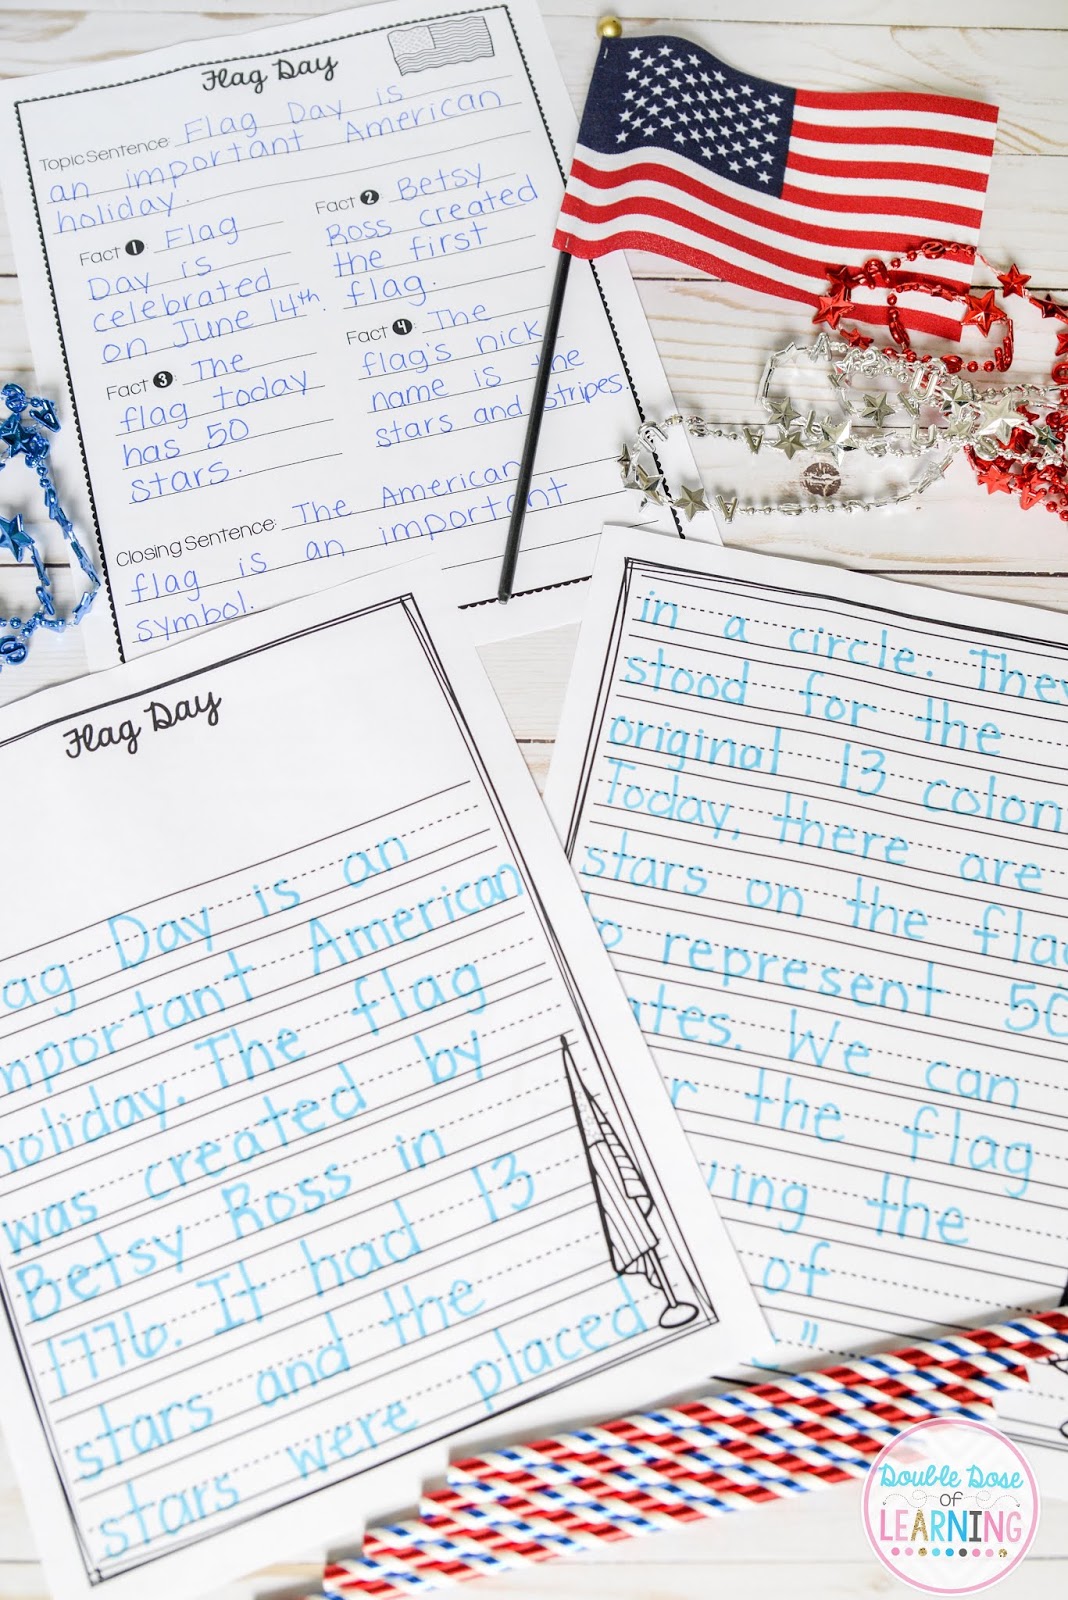 Flag Day
Topic Sentence: Flag Day is
an important American
holiday.
Fact 1 Flag
Day is
celebrated
on June 14th.
Fact 2 Betsy
Ross created
the first
flag.
Fact 3 The
flag today
has 50
stars.
Fact 4 The
flag's nick
name is the
stars and stripes.
Closing Sentence: The American
flag is an important
symbol.
Flag Day
ag Day is an
mportant American
holiday. The flag
was created by
Betsy Ross in
1776. It had 13
stars and the
stars were placed
in a circle. They
stood for the
original 13 colon
Today, there are
stars on the flag
represent 50
ates. We can
the flag
the
of
"
Double Dose
of
LEARNING